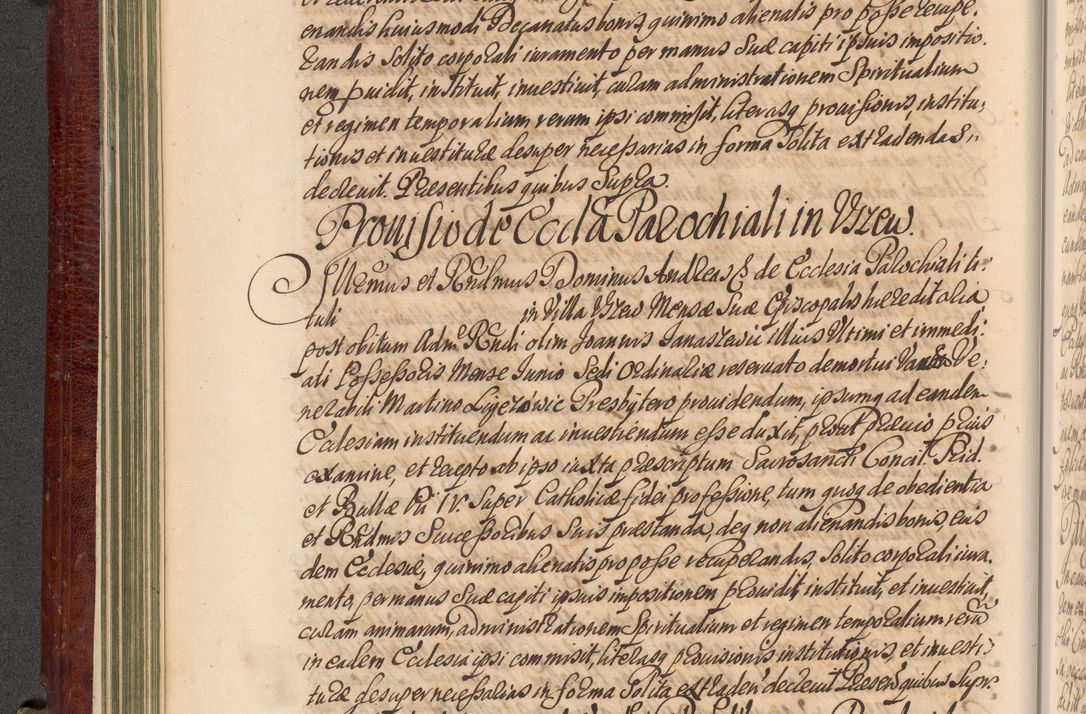 enandis huiusmodi Decanatus bonis, quinimo alienatis pro posse recupe-
randis solito corporali iuramento per manus suæ capiti ipsius impositio-
nem puidit, instituit, investivit, curam administrationem Spiritualium
et regimen temporalium rerum ipsi commisit, literasq prouisionis, institu-
tionis et investituræ desuper necessarias in forma solita extradendas
decreuit. Præsentibus quibus supra.
Prouisio de Eccla Parochiali in Vrzew.
Illremus et Rndmus Dominus Andreas E de Ecclesia Parochiali ti-
tuli in Villa Vrzew Mensæ suæ Episcopalis hæreditaria
post obitum Adm. Rndi olim Joannis Janaszewic illius Vltimi et immedi-
ati Possessoris Mense Junio Sedi Ordinariæ reseruato demortui Ve-
nerabili Martino Ligęzowic Presbytero prouidendum, ipsumq ad eandem
Ecclesiam instituendum ac inuestiendum esse duxit, prout præuio prius
examine, et recepto ab ipso iuxta præscriptum Sacrosancti Concil. Trid.
et Bullæ Pii IV. super Catholicæ fidei professione, tum quoq de obedientia
et Rndmis Successoribus suis præstanda, deq non alienandis bonis eius
dem Ecclesiæ, quinimo alienatis pro posse recuperandis, solito corporali iura-
mento, per manus suæ capiti ipsius impositionem prouidit instituit, et inuestiuit,
curam animarum, administrationem Spiritualium et regimen temporalium rerū
in eadem Ecclesia ipsi commisit, literasq prouisionis institutionis, et inuesti-
turæ desuper necessarias in forma solita extraden' decreuit Præsen' quibus supr.